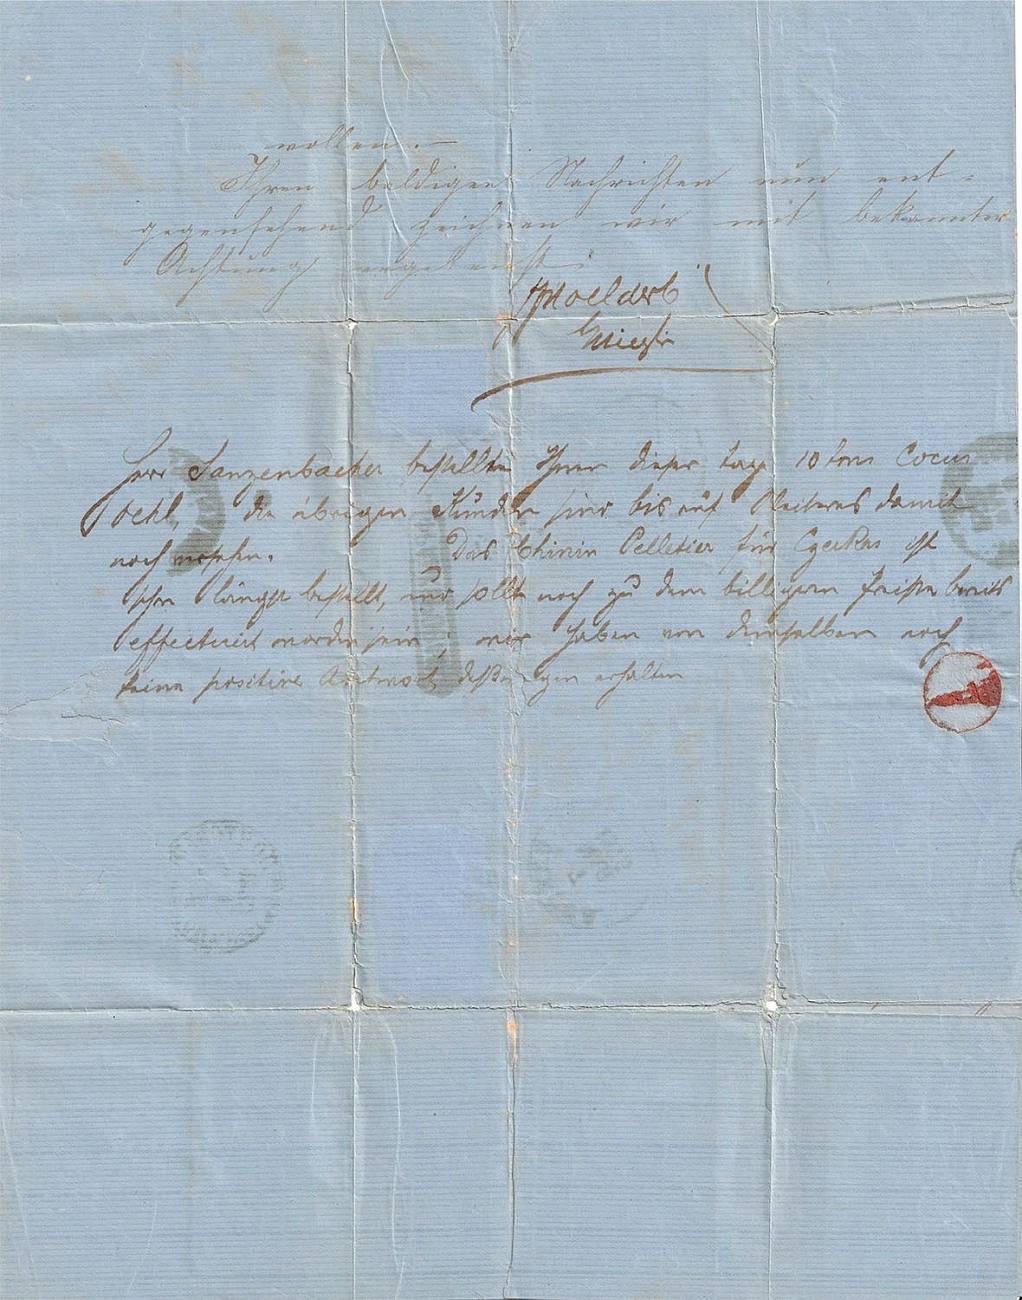 wollen.—
Ihren baldigen Nachrichten nun ent-
gegensehend zeichnen wir mit bekannter
Achtung ergebenst
Herr Sanzenbacher bestellte Ihnen dieser Tage 10 tons Cocus
Oehl, die übrigen Kunden sind bis auf Weiteres damit
noch versehen. Das Chinin Pelletier für ist
schon längst bestellt, und sollte noch zu dem billigen Preise bereits
effectuirt worden sein; wir haben von demselben noch
keine positive Antwort deßwegen erhalten